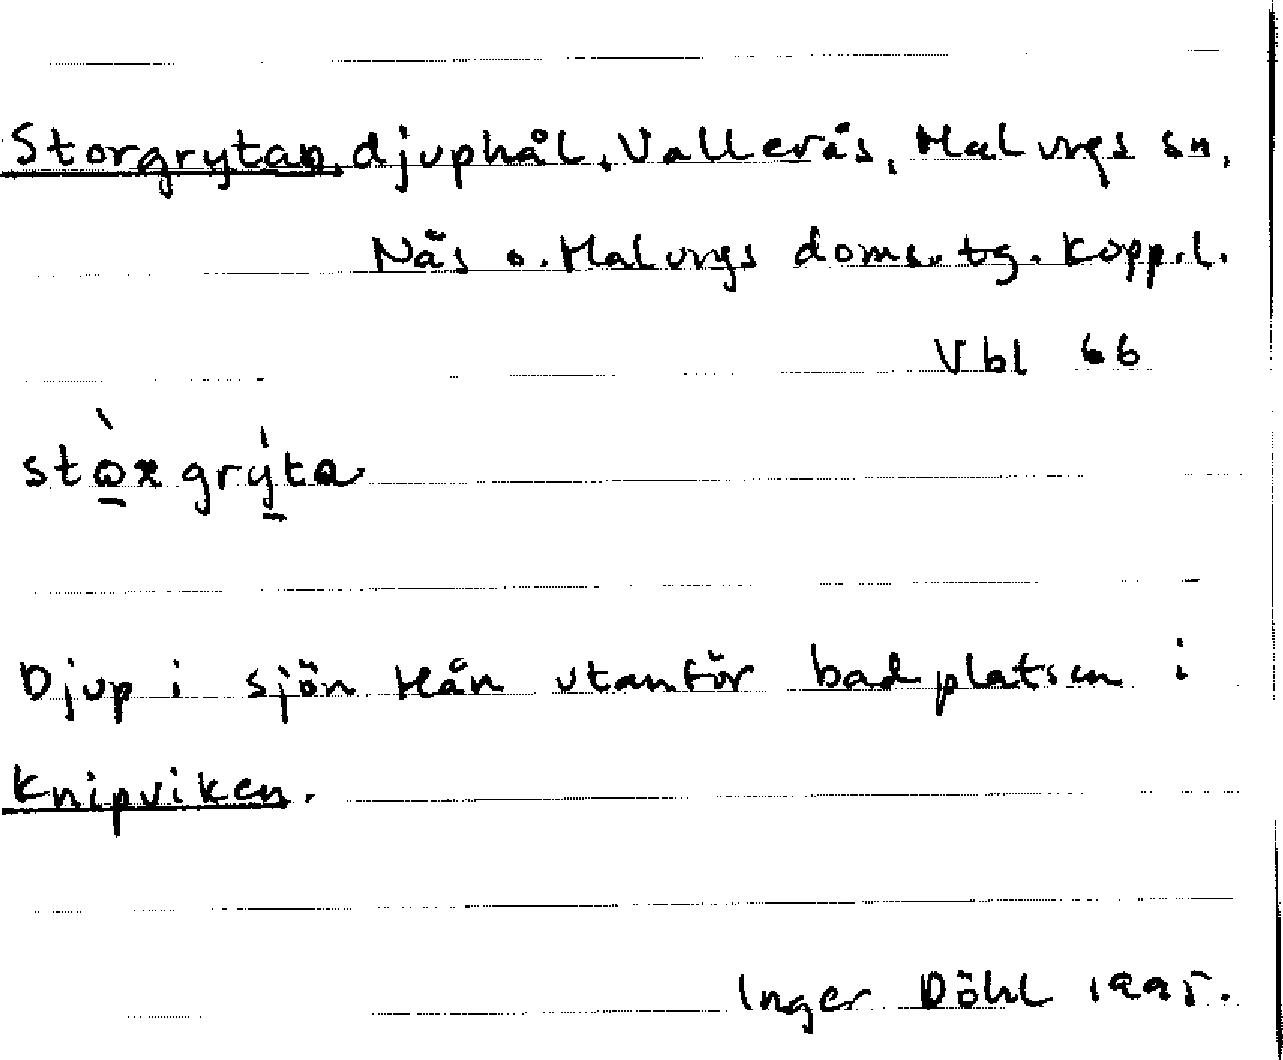 Storgrytan, djuphål, Vallerås, Malungs sn,
Näs o. Malungs doms. tg. Kopp. l.
Vbl 66
Djup i sjön Hån utanför badplatsen i
Knipviken.
Inger Döhl 1995.